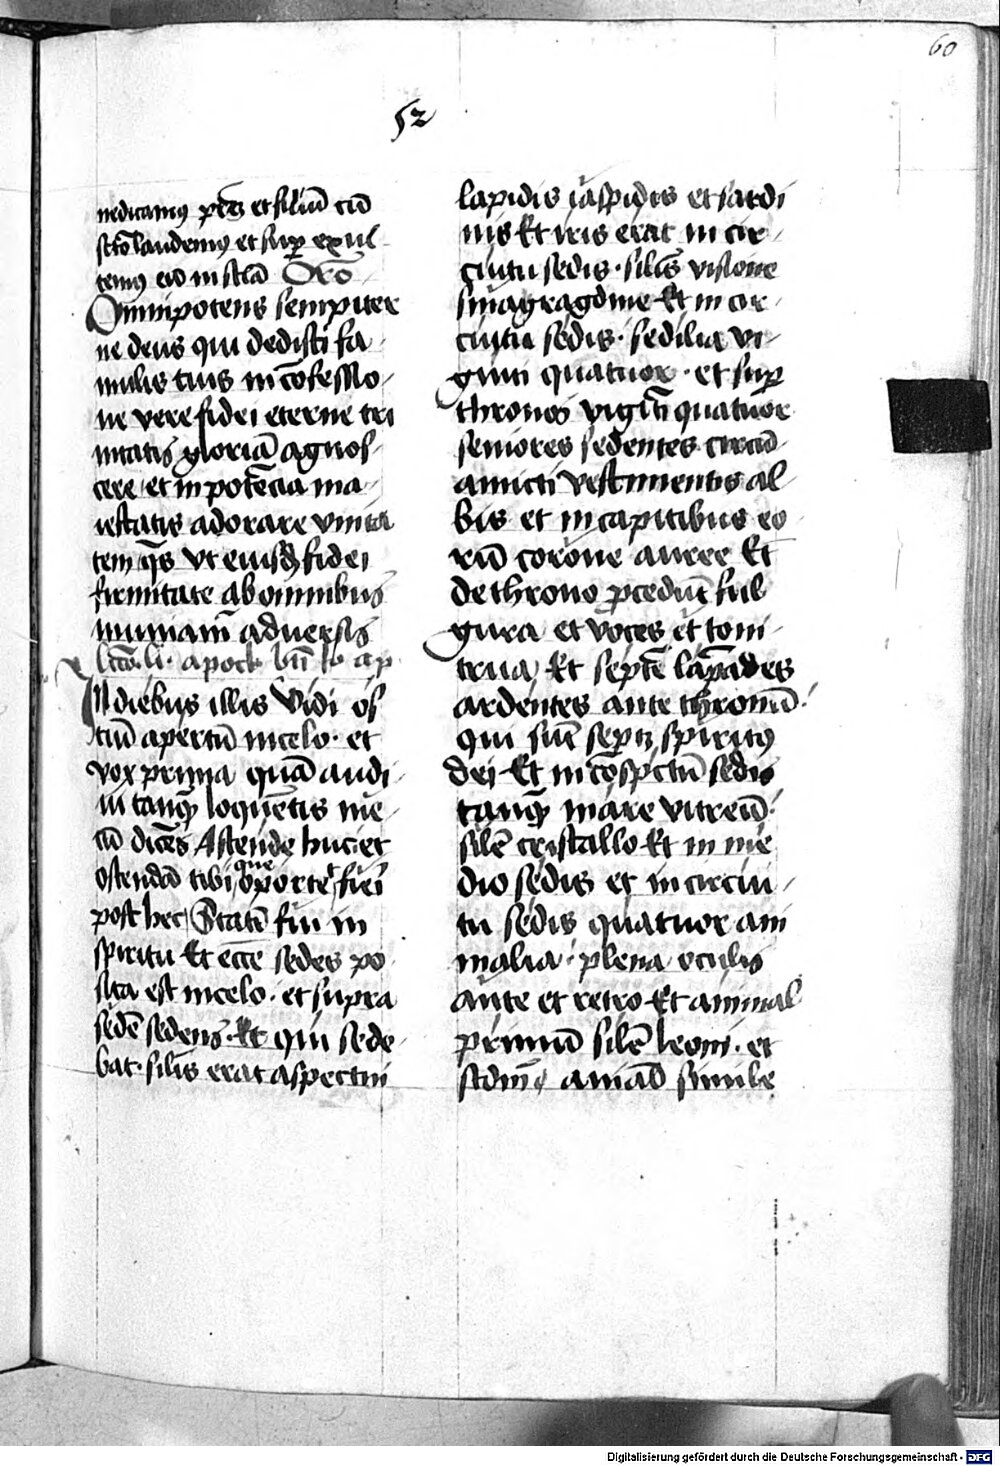 60
52
nedicamus prẽz et filiũ cũ
sctõ laudemus et suꝑ exul
temus eũ in sclã Orõ
Omnipotens sempiter
ne deus qui dedisti fa
mulis tuis in cõfessio
ne vere fidei eterne tri
nitatis gloriã agnos
cere et in potẽcia ma
iestatis adorare vnita
tem q̃s vt eiusdẽ fidei
firmitate ab omnibus
muniam̃ aduersis
lctõ li apoc bti Io ap
In diebus illis Vidi os
tiũ apertũ in celo · et
vox prima quã audi
ui tanq̃ loquẽtis me
cũ dicẽs Ascende huc et
ostendã tibi que oporteᵗ fieĩ
post hec Statĩ fui in
spiritu Et ecce sedes po
sita est in celo · et supra
sedẽ sedens · Et qui sede
bat · silĩs erat aspectui
lapidis iaspidis et sardi
nis Et iris erat in cir
cuitu sedis · silĩs visione
smagragdine Et in cir
cuitu sedis · sedilia vi
ginti quatuor · et suꝑ
thronos vigĩti quatuor
seniores sedentes circũ
amicti vestimentis al
bis et in capitibus eo
rũ corone auree Et
de throno ꝓcedũt ful
gura et voces et toni
trua Et septẽ lãpades
ardentes ante thronũ ·
qui sũt septẽ spiritus
dei Et in cõspectũ sedis
tanq̃ mare vitreũ ·
silẽ cristallo Et in me
dio sedis et in circui
tu sedis quatuor ani
malia · plena oculis
ante et retro Et animal
primũ silẽ leoni · et
scdm̃ aniãl simile
Digitalisierung gefördert durch die Deutsche Forschungsgemeinschaft - DFG